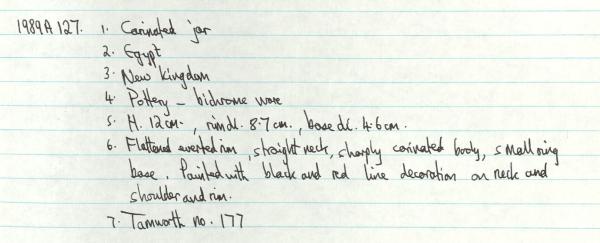 1989A127. 1. Carinated jar
2. Egypt
3. New Kingdom
4. Pottery – bichrome ware
5. H. 12cm. , rim d. 8.7cm. , base d. 4.6cm.
6. Flattened everted rim, straight neck, sharply carinated body, small ring
base. Painted with black and red line decoration on neck and
shoulder and rim.
7. Tamworth no. 177